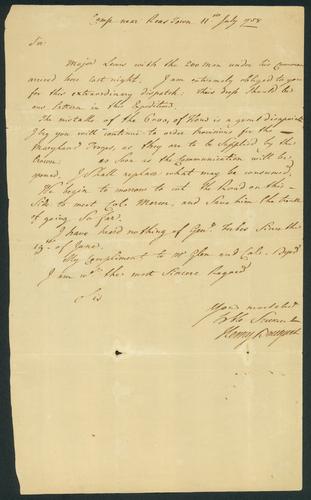 Camp near Reas Town 11th July 1758
Sir
Major Lewis with the 200 men under his Command
arived here last night. I am extremely obliged to you
for this extraordinary dispatch: this dress should be
our pattern in the Expedition.
The mistake of the Cross, of Hand is a great disapoint
I beg you will continue to order Provisions for the
Maryland Troops, as they are to be Supplied by the
Crown: as soon as the Communication will be
opened, I shall replace what may be consumed.
We begin to morrow to cut the Road on this
Side to meet Colo Mercer, and Save him the trouble
of going So far.
I have heard nothing of Genl Forbes Since the
19th of June.
My Compliment to Mr Glen and Colo Byrd
I am with the most Sincere Regard
Sir
Your most obedt
Hble Servant
Henry Bouquet